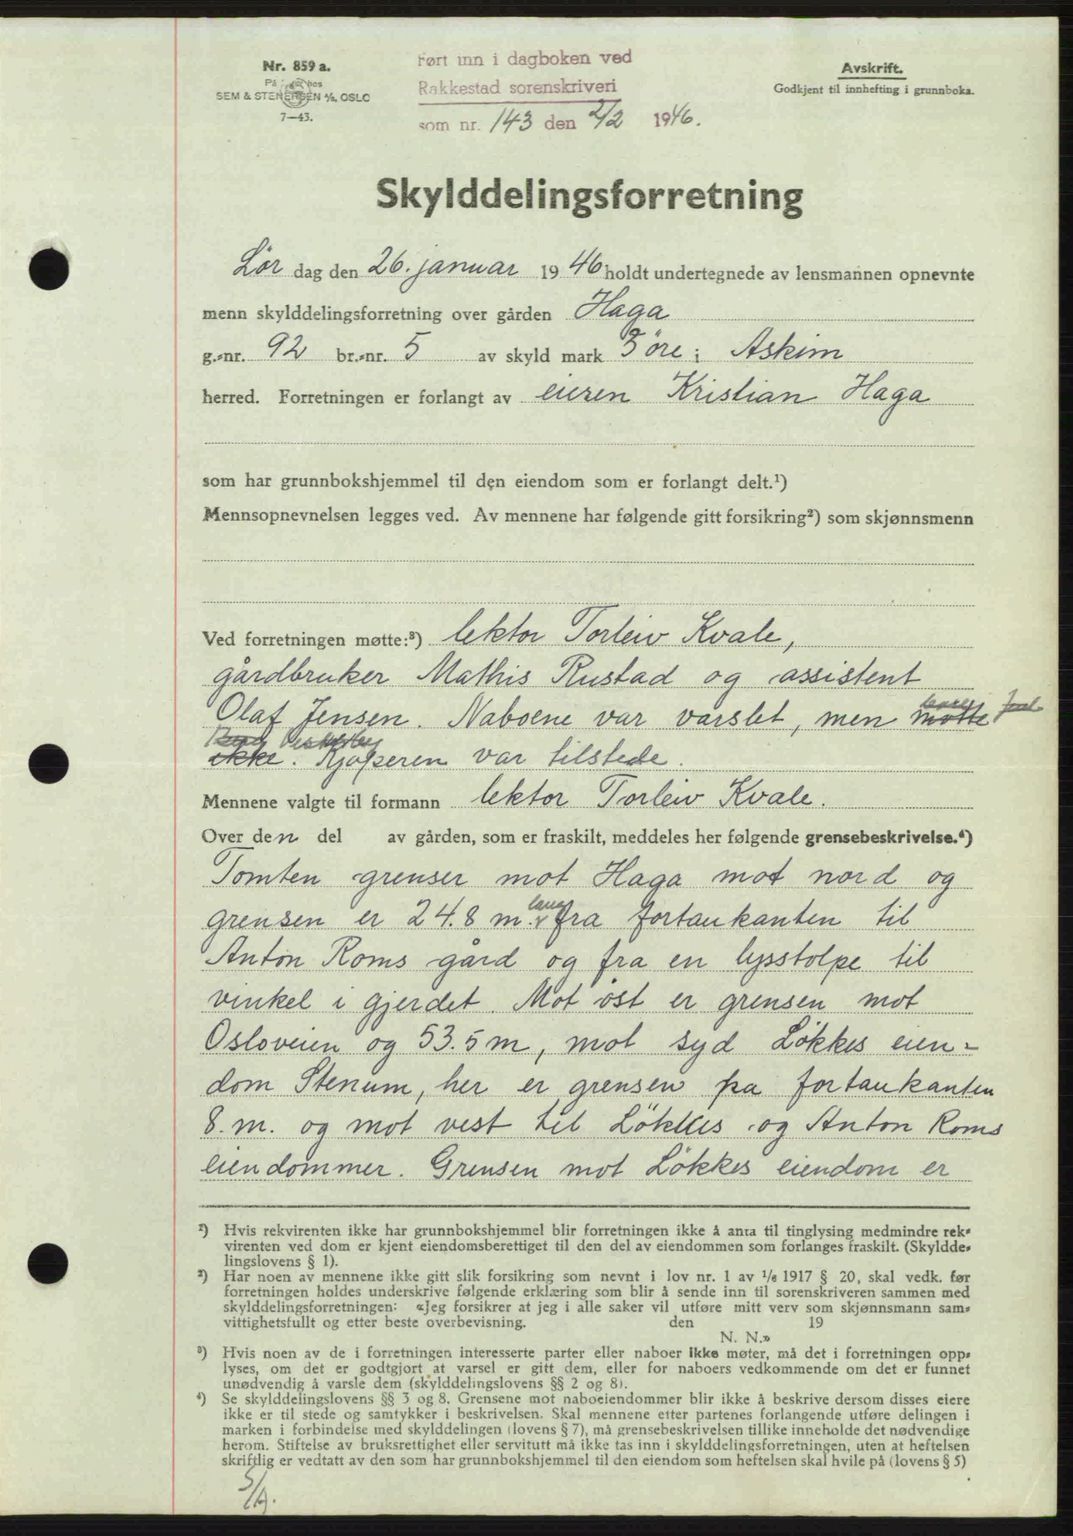 Nr. 859 a.
SEM & STENERSEN A/S, OSLO
7—43.
Ført inn i dagboken ved
Rakkestad sorenskriveri
som nr. 143 den 2/2 1946.
Avskrift.
Godkjent til innhefting i grunnboka.
Skylddelingsforretning
Lör dag den 26. januar 19 46 holdt undertegnede av lensmannen opnevnte
menn skylddelingsforretning over gården Haga
g.-nr. 92 br.-nr. 5 av skyld mark øre i Askim
herred. Forretningen er forlangt av eieren Kristian Haga
som har grunnbokshjemmel til den eiendom som er forlangt delt.¹)
Mennsopnevnelsen legges ved. Av mennene har følgende gitt forsikring²) som skjønnsmenn
Ved forretningen møtte:³) lektor Torleiv Kvale,
gårdbruker Mathis Rustad og assistent
Olaf Jensen. Naboene var varslet, men møtte
ikke. Kjøperen var tilstede.
Mennene valgte til formann lektor Torleiv Kvale.
Over den del av gården, som er fraskilt, meddeles her følgende grensebeskrivelse.⁴)
Tomten grenser mot Haga mot nord og
grensen er 24.8 m. fra fortaukanten til
Anton Roms gård og fra en lysstolpe til
vinkel i gjerdet. Mot öst er grensen mot
Osloveien og 53.5 m, mot syd Løkkes eien-
dom Stenum, her er grensen på fortaukanten
8. m. og mot vest til Lökkes og Anton Roms
eiendommer. Grensen mot Løkkes eiendom er
¹) Hvis rekvirenten ikke har grunnbokshjemmel blir forretningen ikke å anta til tinglysing medmindre rek-
virenten ved dom er kjent eiendomsberettiget til den del av eiendommen som forlanges fraskilt. (Skyldde-
lingslovens § 1).
²) Har noen av mennene ikke gitt slik forsikring som nevnt i lov nr. 1 av 1/6 1917 § 20, skal vedk. før
forretningen holdes underskrive følgende erklæring som blir å sende inn til sorenskriveren sammen med
skylddelingsforretningen: «Jeg forsikrer at jeg i alle saker vil utføre mitt verv som skjønnsmann sam-
vittighetsfullt og etter beste overbevisning. den 19
N. N.»
³) Hvis noen av de i forretningen interesserte parter eller naboer ikke møter, må det i forretningen opp-
lyses, om det er godtgjort at varsel er gitt dem, eller for naboers vedkommende om det er funnet
unødvendig å varsle dem (skylddelingslovens §§ 2 og 8).
⁴) Se skylddelingslovens §§ 3 og 8. Grensene mot naboeiendommer blir ikke å beskrive dersom disses eiere
ikke er til stede og samtykker i beskrivelsen. Skal mennene etter partenes forlangende utføre delingen i
marken i forbindelse med skylddelingen (lovens § 7), må grensebeskrivelsen tillike inneholde det nødvendige
herom. Stiftelse av bruksrettighet eller servitutt må ikke tas inn i skylddelingsforretningen, uten at heftelsen
skriftlig er vedtatt av den som har grunnbokshjemmel til den eiendom som heftelsen skal hvile på (lovens § 5)